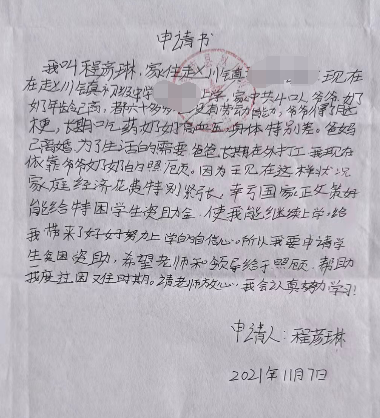 申请书
我叫程彦琳,家住赵川镇 现在
在赵川镇初级中学 上学,家中共4口人爷爷奶
奶年龄已高,都六十多岁 没有劳动能力,爷爷得了脑
梗,长期口吃药奶奶高血压,身体特别差。爸妈
已离婚,为了生活的需要爸爸长期在外打工,我现在
依靠爷爷奶奶的照顾。因为
家庭经济花费特别紧张,
能给特困学生资助金,使我能继续上学给
我带来了好好努力上学的自信心。所以我要申请学
生贫困资助,希望老师和领导给于照顾,帮助
我度过困又住时期。请老师放心,我会认真努力学习!
申请人:程彦琳
2021年11月7日